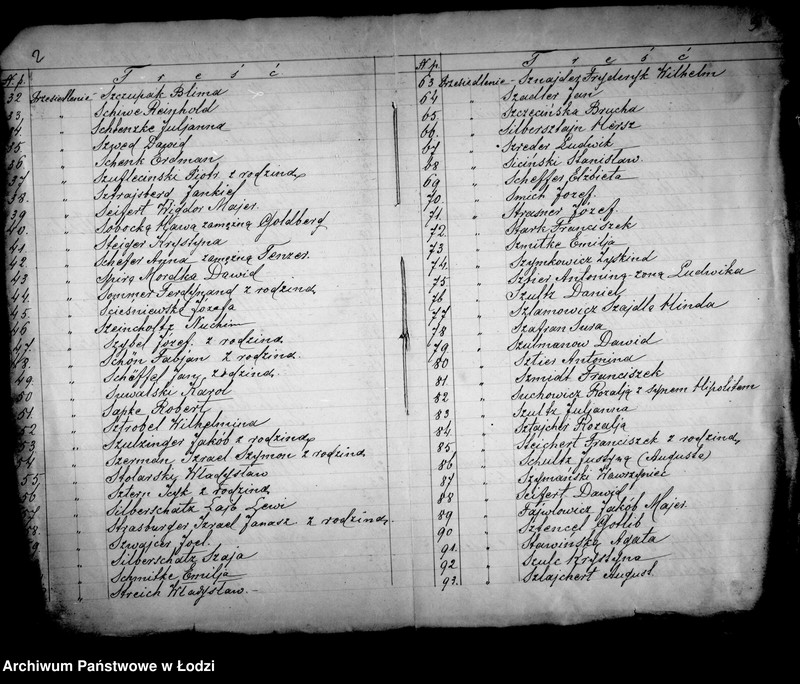 2
N p. Treść
32 Przesiedlenie - Szczupak Blima
33. " Schiwe Reinhold
34. " Schienzke Juljanna
35. " Szwed Dawid
36. " Schenk Erdman
37. " Szuflecinski Piotr z rodziną
38. " Sztrajsberd Jankiel
39 " Seifert Wigdor Majer
40. " Sobocką Hawa zamężną Goldberg
41. " Steiger Krystyna
42 " Schefer Anna zamężną Tenzer.
43 " Spirą Mordka Dawid
44 " Sommer Ferdynand z rodziną
45. " Scieśniewska Józefa
46 " Szeincholtz Nuchim
47. " Szybel Józef. z rodziną
48. " Schön Fabjan z rodziną
49. " Schöffel Jan, z rodziną.
50 " Suwalski Karol
51 " Sapke Robert
52 " Szfrobel Wilhelmina
53 " Szulzinger Jakób z rodziną
54 " Szerman Izrael Szymon z rodziną
55. " Stolarsky Władysław
56 " Sztern Icyk z rodziną
57 " Silberschatz Łaja Lewi
58. " Strasburger Izrael Janasz z rodziną.
9 " Szwajcer Joel.
" Silberschatz Szaja
" Schmilke Emilja
" Streich Władysław. -
N p. Treść
63 Przesiedlenie - Sznajder Fryderyk Wilhelm
64 " Szadler Jan
65. " Szczecińska Brucha
66. " Silbersztajn Hersz
67 " Szreder Ludwik
68 " Siciński Stanisław.
69 " Scheffer Elżbieta
70. " Smich Józef.
71. " Strasner Józef.
72. " Stark Franciszek
73 " Szmitke Emilja
74. " Szymkowicz Zyskind
75 " Szbier Antonina - żona Ludwika
76 " Szultz Daniel
77 " Szlamowicz Szajdla Hinda
78 " Szafran Sura
79 " Szulmanow Dawid
80 " Sztier Antonina
81. " Szmidt Franciszek
82 " Suchowicz Rozalja z synem Hipolitem
83 " Szultz Juljanna
84 " Sztajcher Rozalja
85 " Steichert Franciszek z rodziną
86 " Schultz Justyna (Augusta)
87 " Szymański Wawrzyniec
88 " Seifert Dawid
89 " Fajwlowicz Jakób Majer.
90 " Sztencel Gotlib
91. " Stawińska Agata
92 " Szulc Krystyna
93. " Szlajchert August.
Archiwum Państwowe w Łodzi